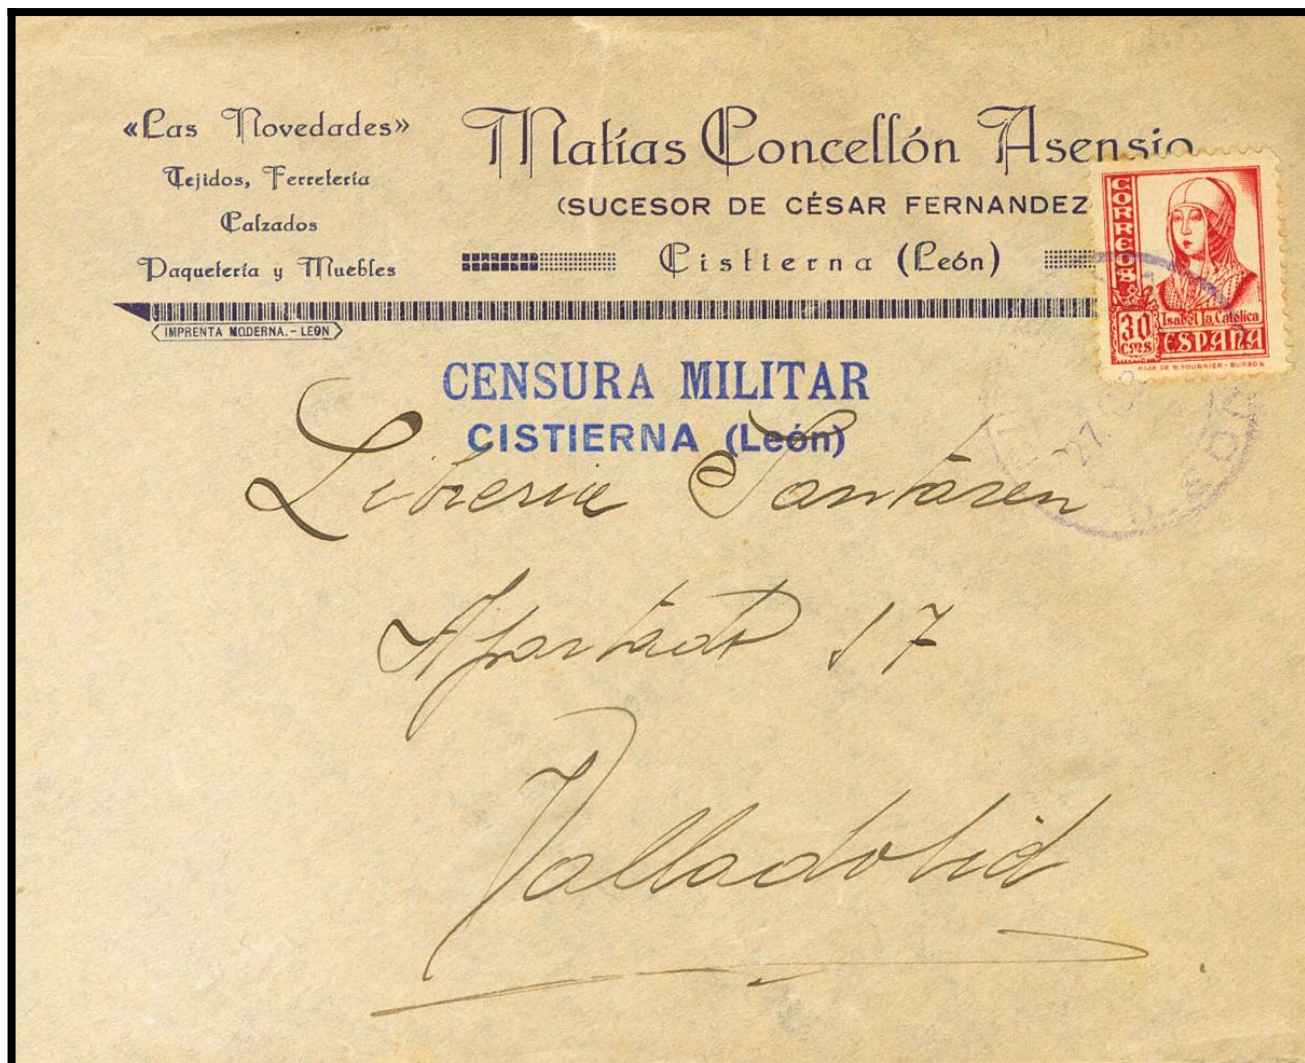 «Las Novedades»
Tejidos, Ferretería
Calzados
Paquetería y Muebles
Matías Concellón Asensio
(SUCESOR DE CÉSAR FERNANDEZ
Cistierna (León)
IMPRENTA MODERNA.-LEON
CORREOS
30
CMS
Isabel la Católica
ESPAÑA
HIJA DE B. FOURNIER-BURGOS
CENSURA MILITAR
CISTIERNA (León)
Libreria Santaren
Apartado 17
Valladolid